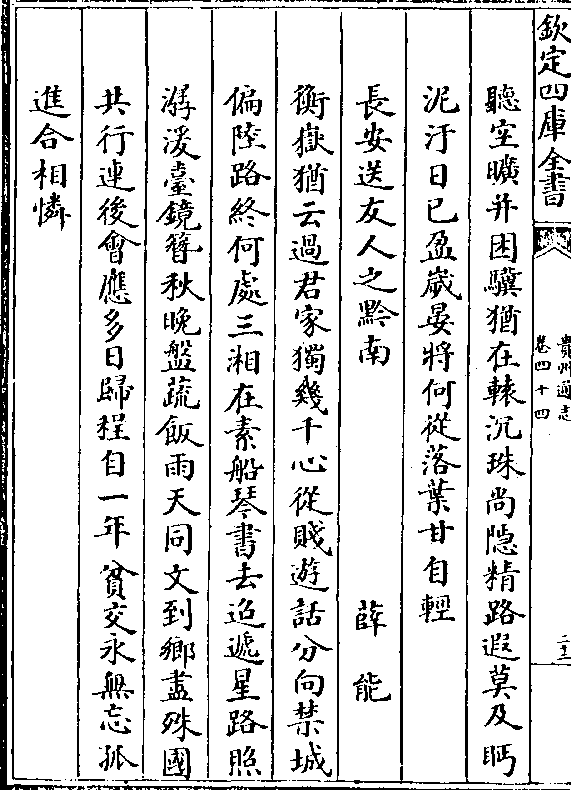 欽定四庫全書
貴州通志
卷四十四
聽空曠并困驥猶在轅沉珠尚隱精路遐莫及眄
泥汙日已盈歲晏將何從落葉甘自輕
長安送友人之黔南 薛能
衡嶽猶云過君家獨幾千心從賤遊話分向禁城
偏陸路終何處三湘在素船琴書去迢遞星路照
潺湲臺鏡簪秋晚盤蔬飯雨天同文到鄉盡殊國
共行連後會應多日歸程自一年貧交永無忘孤
進合相憐